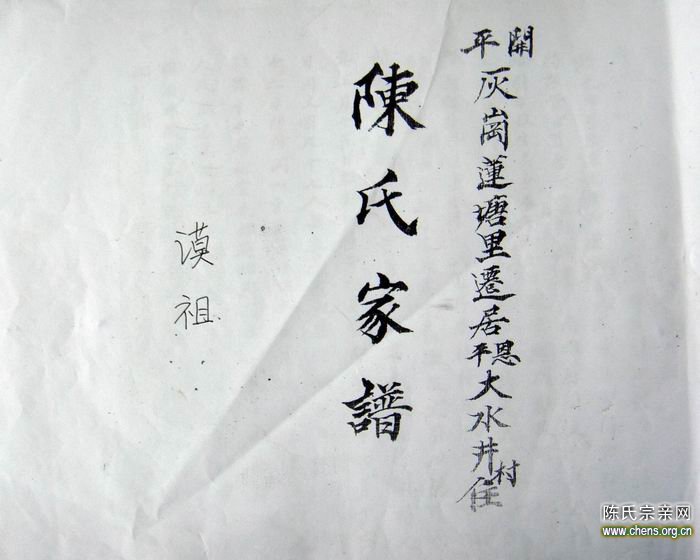 開平灰崗蓮塘里遷居恩平大水井村住
陳氏家譜
謨祖
陈氏宗亲网
www.chens.org.cn